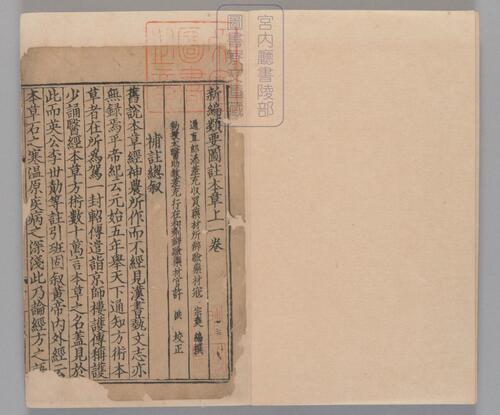 新編類要圖註本草上一卷
通直郎添差充收買藥材所辨驗藥材寇 宗奭 編撰
勑授太醫助教差充行在和劑辨驗藥材官許 洪 校正
補註總叙
舊說本草經神農所作而不經見漢書藝文志亦
無録焉平帝紀云元始五年舉天下通知方術本
草者在所為駕一封軺傳遣詣京師樓護傳稱護
少誦醫經本草方術數十萬言本草之名蓋見於
此而英公李世勣等註引班固叙黃帝內外經云
本草石之寒温原疾病之深淺此乃論經方之語
宮內廳書陵部